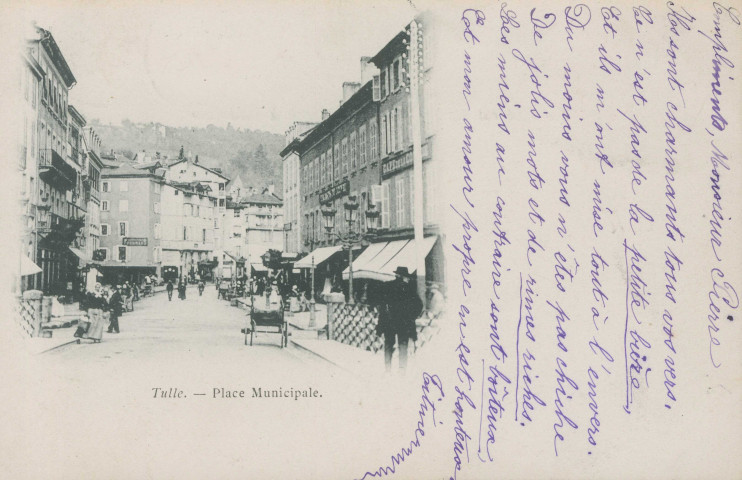 Compliments, Monsieur Pierre !
Ils sont charmants tous vos vers.
Ce n'est pas de la petite bière,
Et ils m'ont mise tout à l'envers.
Du moins vous n'êtes pas chiche
De jolis mots et de rimes riches.
Les miens au contraire sont boiteux,
Et mon amour propre en est honteux.
Tulle. — Place Municipale.